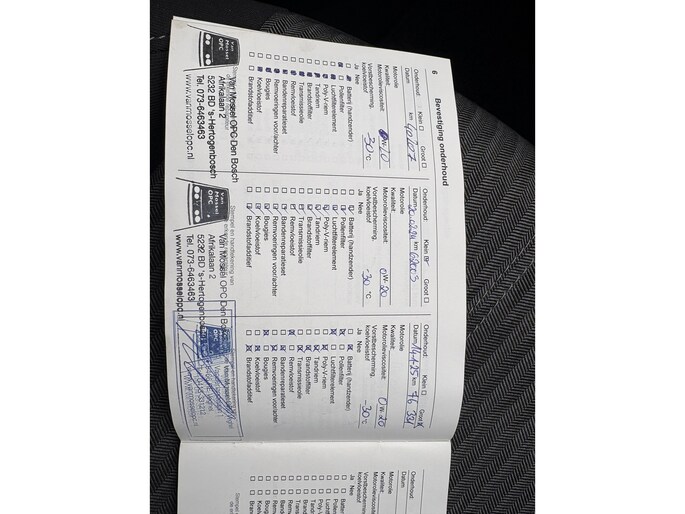 6
Bevestiging onderhoud
Onderhoud: Klein ☐ Groot ☐
Datum km 40707
Motorolie
Kwaliteit:
Motorolieviscositeit: 0W20
Vorstbescherming,
koelvloeistof -30°C
Ja Nee
Batterij (handzender)
Pollenfilter
Luchtfilterelement
Poly-V-riem
Tandriem
Brandstoffilter
Transmissieolie
Remvloeistof
Bandenreparatieset
Remvoeringen voor/achter
Bougies
Koelvloeistof
Brandstofadditief
Van Mossel OPC
Van Mossel OPC Den Bosch
Afrikalaan 2
5232 BD 's-Hertogenbosch
Tel. 073-6463463
www.vanmosselopc.nl
Onderhoud: Klein Groot ☐
Datum km
Motorolie
Kwaliteit:
Motorolieviscositeit: 0W20
Vorstbescherming,
koelvloeistof -30°C
Ja Nee
Batterij (handzender)
Pollenfilter
Luchtfilterelement
Poly-V-riem
Tandriem
Brandstoffilter
Transmissieolie
Remvloeistof
Bandenreparatieset
Remvoeringen voor/achter
Bougies
Koelvloeistof
Brandstofadditief
Stempel en handtekening van
Van Mossel OPC
Van Mossel OPC Den Bosch
Afrikalaan 2
5232 BD 's-Hertogenbosch
Tel. 073-6463463
www.vanmosselopc.nl
Onderhoud: Klein ☐ Groot
Datum 14-1-25 km 76 381
Motorolie
Kwaliteit:
Motorolieviscositeit: 0W20
Vorstbescherming,
koelvloeistof -30°C
Ja Nee
Batterij (handzender)
Pollenfilter
Luchtfilterelement
Poly-V-riem
Tandriem
Brandstoffilter
Transmissieolie
Remvloeistof
Bandenreparatieset
Remvoeringen voor/achter
Bougies
Koelvloeistof
Brandstofadditief
Onderhoud:
Datum
Motorolie
Kwaliteit:
Motorolieviscositeit:
Vorstbescherming,
koelvloeistof
Ja Nee